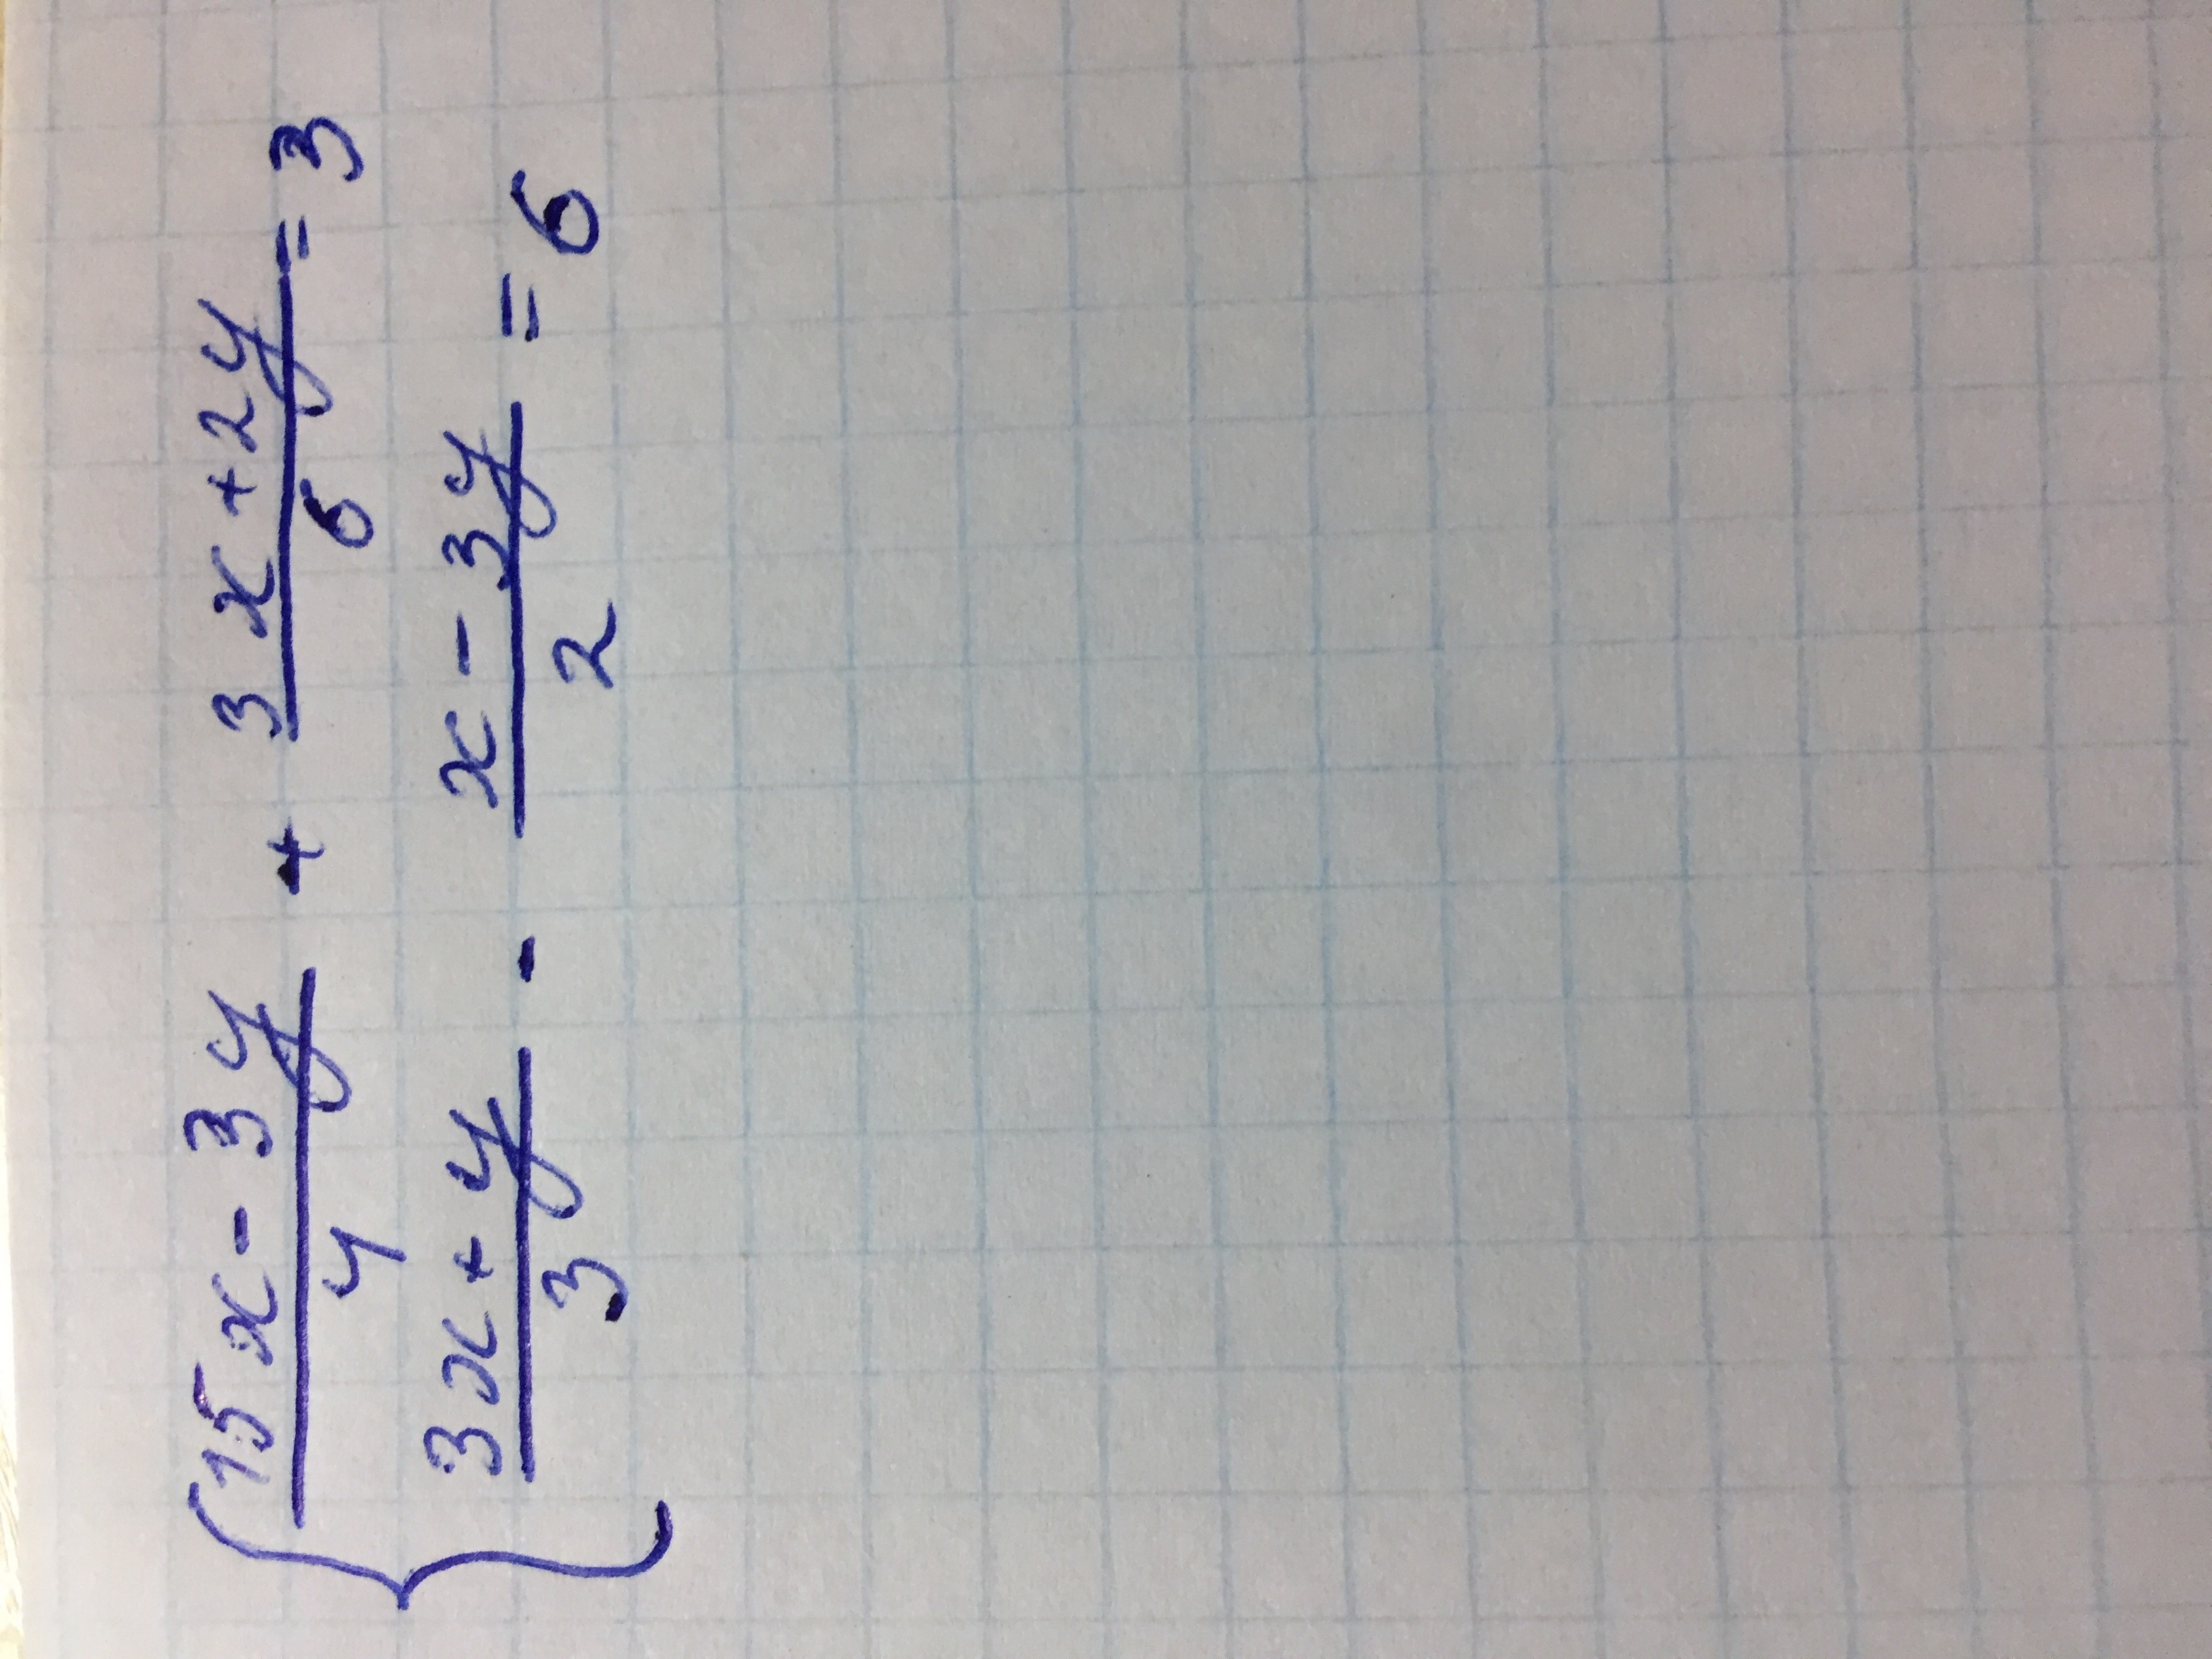 { (15x - 3y)/4 + (3x + 2y)/6 = 3
(3x + y)/3 - (x - 3y)/2 = 6